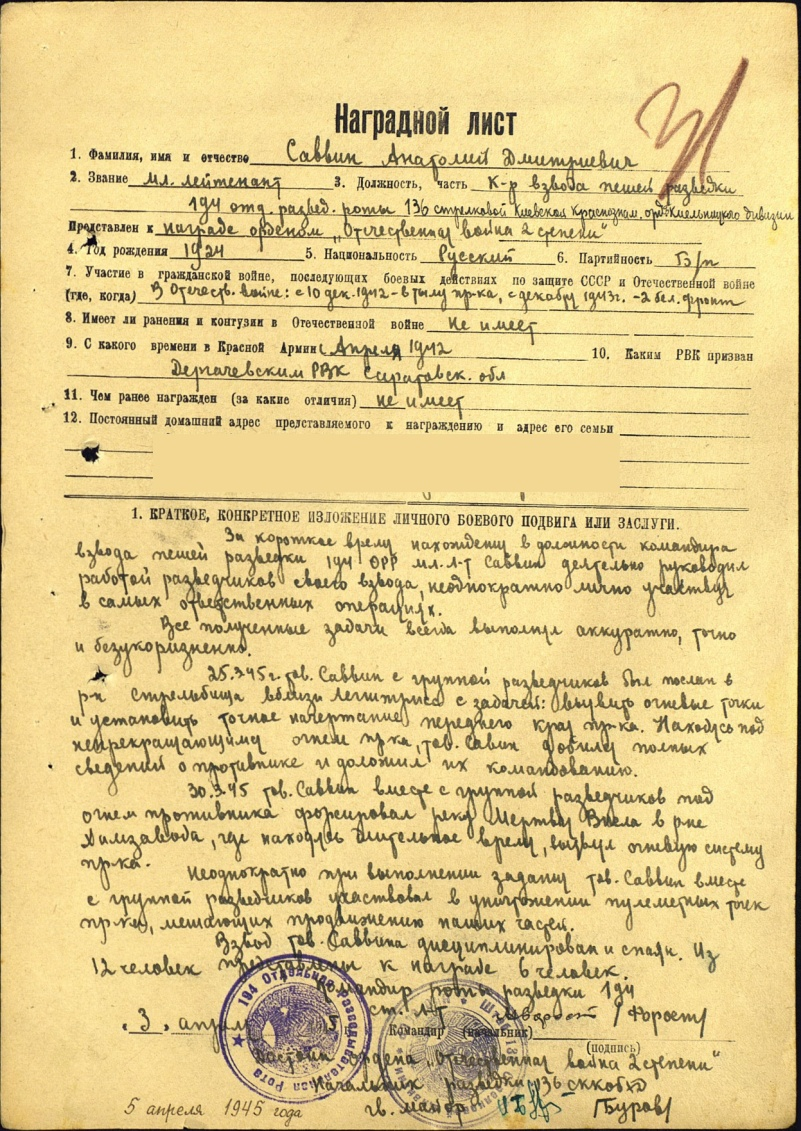 Наградной лист
1. Фамилия, имя и отчество Саввин Анатолий Дмитриевич
2. Звание мл. лейтенант 3. Должность, часть К-р взвода пешей разведки
194 отд. развед. роты 136 стрелковой Киевской Краснознам. орд. Хмельницкого дивизии
Представлен к награде орденом „Отечественная война 2 степени"
4. Год рождения 1924 5. Национальность Русский 6. Партийность Б/п
7. Участие в гражданской войне, последующих боевых действиях по защите СССР и Отечественной войне
(где, когда) В Отечеств. войне: с 10 дек. 1942 - в тылу пр-ка, с декабря 1943 г. - 2 бел. фронт
8. Имеет ли ранения и контузии в Отечественной войне не имеет
9. С какого времени в Красной Армии с Апреля 1942 10. Каким РВК призван
Дергачевским РВК Саратовск. обл
11. Чем ранее награжден (за какие отличия) не имеет
12. Постоянный домашний адрес представляемого к награждению и адрес его семьи
1. КРАТКОЕ, КОНКРЕТНОЕ ИЗЛОЖЕНИЕ ЛИЧНОГО БОЕВОГО ПОДВИГА ИЛИ ЗАСЛУГИ.
За короткое время нахождения в должности командира
взвода пешей разведки 194 ОРР мл. л-т Саввин деятельно руководил
работой разведчиков своего взвода, неоднократно лично участвуя
в самых ответственных операциях.
Все полученные задачи всегда выполнял аккуратно, точно
и безукоризненно.
25.3.45 г. тов. Саввин с группой разведчиков был послан в
р-н стрельбища вблизи с задачей: выявить огневые точки
и установить точное начертание переднего края пр-ка. Находясь под
непрекращающимся огнем пр-ка, тов. Савин добился полных
сведений о противнике и доложил их командованию.
30.3.45 тов. Саввин вместе с группой разведчиков под
огнем противника форсировал реку Мертвая Висла в р-не
, где находясь длительное время, выявил огневую систему
пр-ка.
Неоднократно при выполнении задания тов. Саввин вместе
с группой разведчиков участвовал в уничтожении пулеметных точек
пр-ка, мешающих продвижению наших частей.
Взвод тов. Саввина дисциплинирован и спаян. Из
12 человек представлены к награде 6 человек.
Командир роты разведки 194
ст. л-т /Форост/
„3" апреля Командир (начальник)
(подпись)
194 Отдельная Разведывательная Рота
Достоин ордена „Отечественная война 2 степени"
Начальник разведки 136 сккобхд
гв. майор /Буров/
5 апреля 1945 года